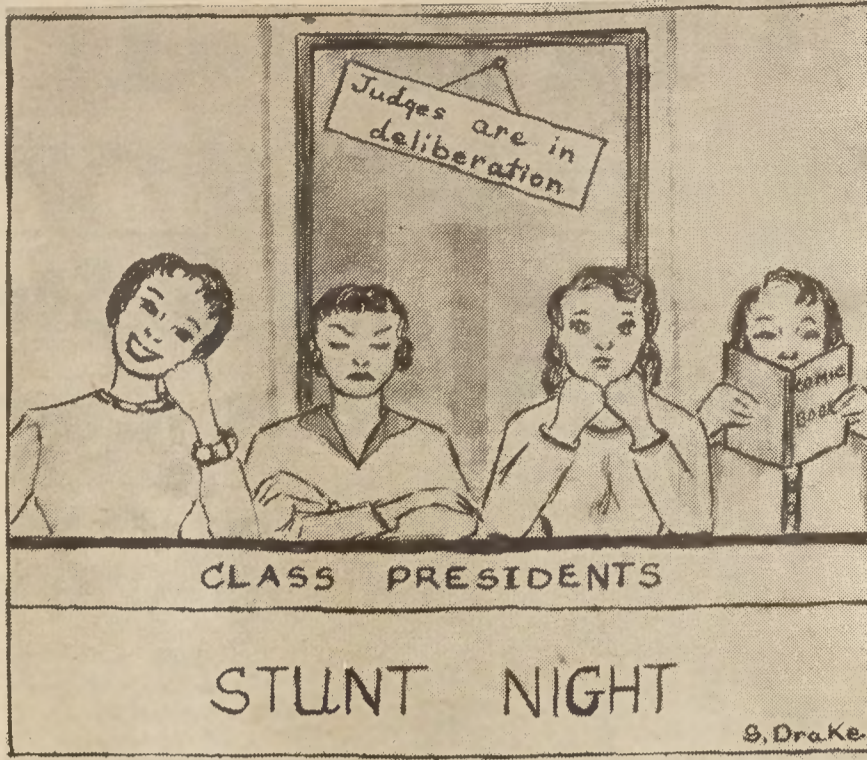 Judges are in
deliberation
COMIC
BOOK
CLASS PRESIDENTS
STUNT NIGHT
S. Drake